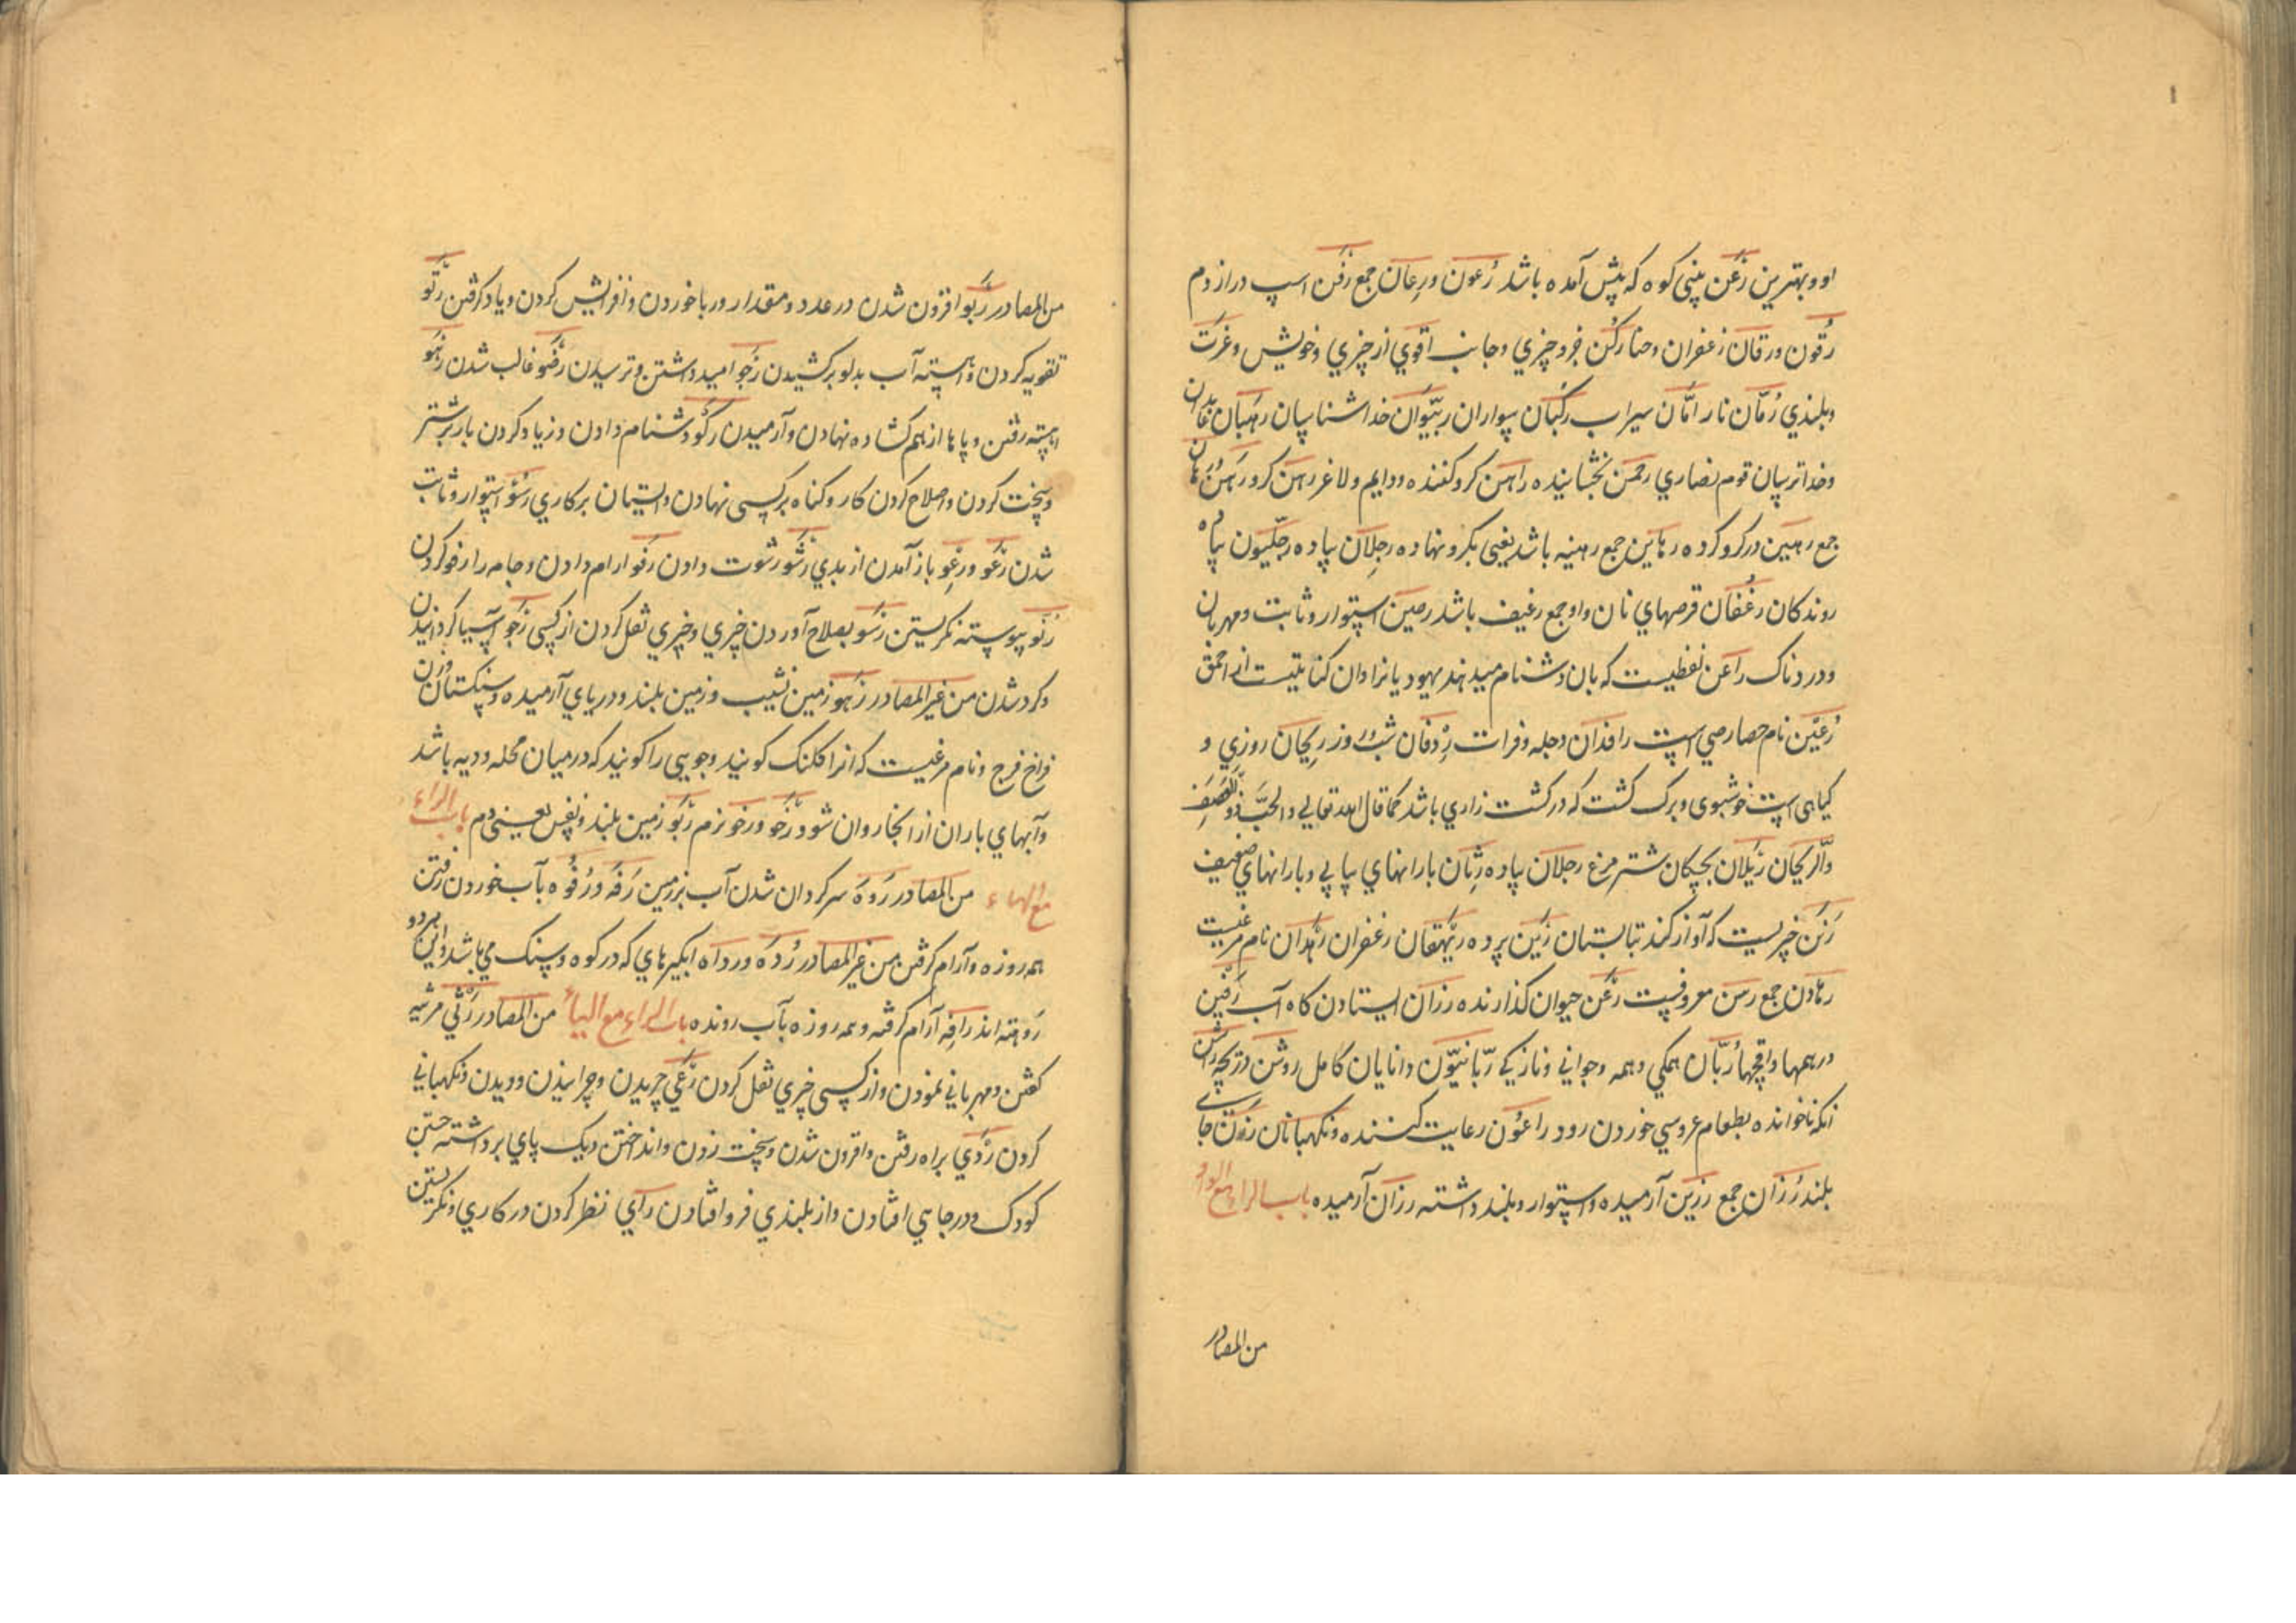 او و بهترین رَعْن بینی کوه که پیش آمده باشد رُعون ورِعان جمع رَفَن اسپ دراز دم
رَقون ورقان زعفران وحنا رکن جزو چیزي وجانب اقوي از چیزي وخویش وعزت
وبلندي رُمّان نار رامّان سیراب رکبان سواران ربّیّون خدا شناسان رهبان عابدان
وخدا ترسان قوم نصاري رحمن بخشاینده راهن کرو کننده ودایم ولاغر رهن کرو رهن رهان
جمع رهین در کرو کرده رهاین جمع رهینه باشد یعنی بکرو نهاده رجلان پیاده رجلیون پیاده
روندکان رغفان قرصهاي نان واو جمع رغیف باشد رصین استوار وثابت ومهربان
ودردناک راعن لفظیست که بان دشنام میدهند یهود یا نرا وان کنایتیست از احمق
رُعَیْن نام حصارصي است رافدان دجله وفرات رِدفان شب وروز ریحان روزي و
کیاهی است خوشبوی وبرک کشت که در کشت زاري باشد کما قال الله تعالي والحبّ ذو العصف
والریحان رئلان بچکان شتر مرغ رجلان پیاده رثان بارانهاي پیاپي وبارانهاي ضعیف
رَنَن چیزیست که آواز کند تابستان رَین پرده ریهقان زعفران رهدان نام مرغیست
رهادن جمع رسن معروفست رعن حیوان کذارنده رزان ایستادن کاه آب رقین
درهمها واقچها رُبّان همکي وهمه وجواني وتازیکے ربّانیّون دانایان کامل روشن دریچه راشن
انکه ناخوانده بطعام عروسي خوردن رود راعُون رعایت کننده ونکهبانان رزون جاے
بلند رُزان جمع رزین آرمیده واستوار وبلند داشته رزان آرمیده باب الراء مع الواو
من المصادر
من المصادر رَبو افزون شدن در عدد ومقدار وربا خوردن وافزایش کردن وباد کرفتن رَتو
تقویه کردن واهسته آب بدلو برکشیدن رَجو امید داشتن وترسیدن رَضو غالب شدن رَهو
اهسته رفتن وپاها از هم کشاده نهادن وآرمیدن رکو دشنام دادن وزیاد کردن بار بر شتر
وسخت کردن واصلاح کردن کار وکناه بر کسی نهادن وایستادن بر کاري رَسو استوار وثابت
شدن رَعو ورِعو باز آمدن از بدي رَشو رشوت دادن رَفو ارام دادن وجامه را رفو کردن
رُنو پیوسته نکریستن رَسو بصلاح آوردن چیزي وچیزي نقل کردن از کسی رَحو آسیا کردانیدن
وکرد شدن من غیر المصادر رَهو زمین نشیب وزمین بلند ودریاي آرمیده وسنکستان وزن
فراخ فرج ونام مرغیست که انرا کلنک کویند وجویی را کویند که درمیان محله ودیه باشد
وآبهاي باران از انجا روان شود رَخو ورخو نرم رَبو زمین بلند ونفس یعنی دم باب الراء
مع الهاء من المصادر رَوه سرکردان شدن آب بر زمین رَفه ورُفوه بآب خوردن رفتن
همه روزه وآرام کرفتن من غیر المصادر رُده ورداه ابکیرهاي که در کوه وسنک مي باشد واین هر دو
رَوهته اند رافِه آرام کرفته وهمه روزه بآب رونده باب الراء مع الیاء من المصادر رَثي مرثیه
کفتن ومهرباني نمودن واز کسی چیزي نقل کردن رَعي چریدن وچرانیدن ودیدن ونکهباني
کردن رَدي براه رفتن وافزون شدن وسخت زدن وانداختن ویک پاي برداشته جستن
کودک ودر چاهي افتادن واز بلندي فرو افتادن رأي نظر کردن در کاري ونکریستن